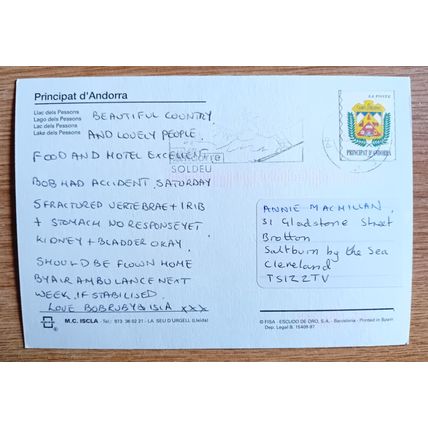 Principat d'Andorra
Llac dels Pessons
Lago dels Pessons
Lac dels Pessons
Lake dels Pessons
BEAUTIFUL COUNTRY
AND LOVELY PEOPLE.
FOOD AND HOTEL EXCELLENT
BOB HAD ACCIDENT, SATURDAY
5 FRACTURED VERTEBRAE + 1 RIB
+ STOMACH NO RESPONSE YET
KIDNEY + BLADDER OKAY.
SHOULD BE FLOWN HOME
BY AIR AMBULANCE NEXT
WEEK, IF STABILISED.
LOVE BOB RUBY & ISLA XXX
M.C. ISCLA - Tel.: 973 36 02 21 - LA SEU D'URGELL (Lleida)
SOLDEU
LA POSTE
PRINCIPAT D'ANDORRA
ANNIE MACMILLAN.
51 Gladstone Street
Brotton
Saltburn by the Sea
Cleveland
TS12 2TV
© FISA - ESCUDO DE ORO, S.A. - Barcelona - Printed in Spain
Dep. Legal B. 15409-97